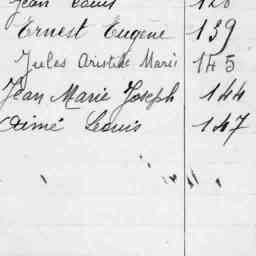 Jean Louis 128
Ernest Eugène 139
Jules Aristide Marie 145
Jean Marie Joseph 144
Aimé Louis 147